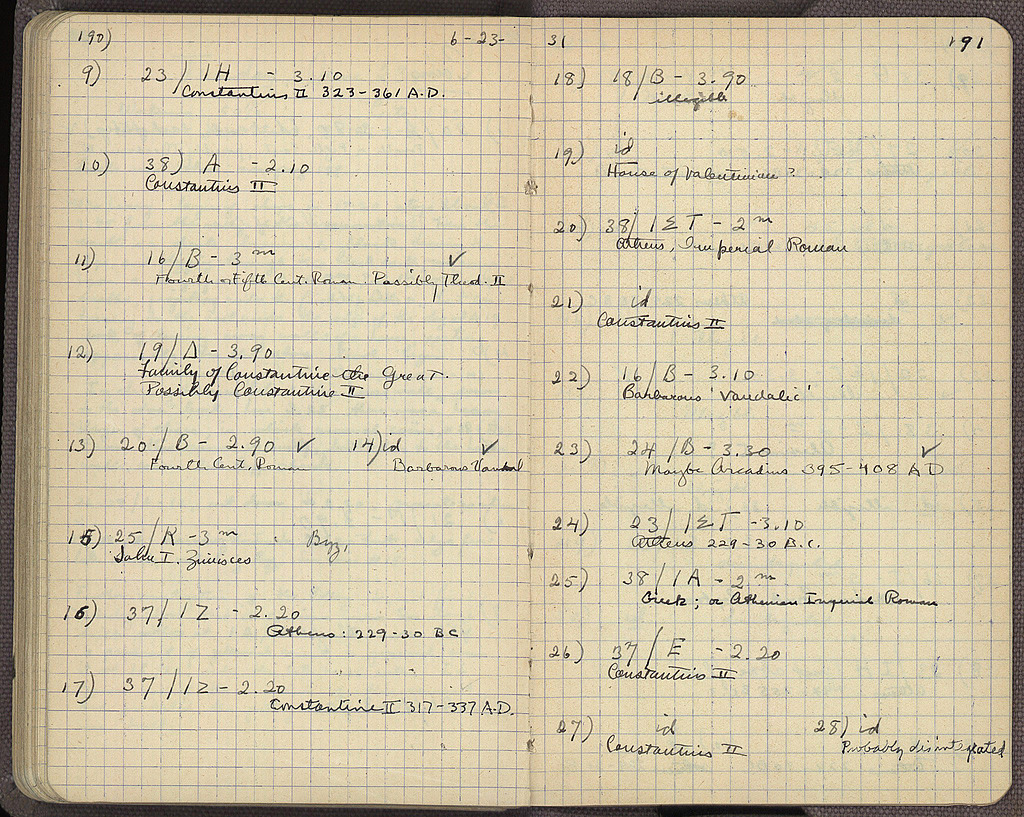 190) 6-23-
9) 23/1H - 3.10
Constantius II 323-361 A.D.
10) 38) A - 2.10
Constantius II
11) 16/B - 3 m ✓
Fourth or Fifth Cent. Roman. Possibly Theod. II
12) 19/Δ - 3.90
Family of Constantine the Great.
Possibly Constantine II
13) 20/B - 2.90 ✓ 14) id ✓
Fourth Cent. Roman Barbarous Vandal
15) 25/K - 3 m Byz.
John I. Zimisces
16) 37/1Z - 2.20
Athens: 229-30 BC
17) 37/1Z - 2.20
Constantine II 317-337 A.D.
31 191
18) 18/B - 3.90
illegible
19) id
House of Valentinian?
20) 38/1ΣT - 2 m
Athens, Imperial Roman
21) id
Constantius II
22) 16/B - 3.10
Barbarous 'Vandalic'
23) 24/B - 3.30 ✓
Maybe Arcadius 395-408 AD
24) 23/1ΣT - 3.10
Athens 229-30 B.C.
25) 38/1A - 2 m
Greek; or Athenian Imperial Roman
26) 37/E - 2.20
Constantius II
27) id 28) id
Constantius II Probably disintegrated